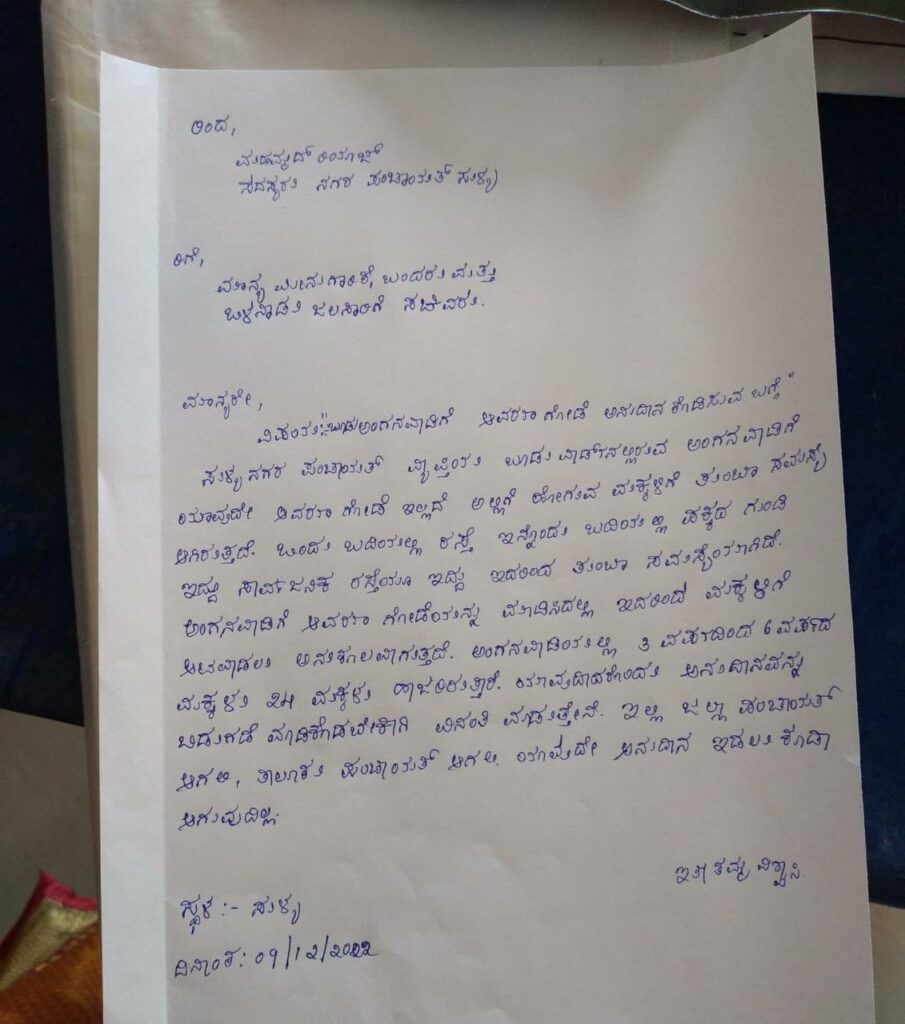 ಇಂದ,
ಮಹಮ್ಮದ್ ರಿಯಾಜ್
ಸದಸ್ಯರು ನಗರ ಪಂಚಾಯತ್ ಸುಳ್ಯ
ರಿಗೆ,
ಮಾನ್ಯ ಮೀನುಗಾರಿಕೆ, ಬಂದರು ಮತ್ತು
ಒಳನಾಡು ಜಲಸಾರಿಗೆ ಸಚಿವರು.
ಮಾನ್ಯರೇ,
ವಿಷಯ:- "ಅಂಗನವಾಡಿಗೆ ಆವರಣ ಗೋಡೆ ಅನುದಾನ ಕೊಡಿಸುವ ಬಗ್ಗೆ"
ಸುಳ್ಯ ನಗರ ಪಂಚಾಯತ್ ವ್ಯಾಪ್ತಿಯ ಬೂಡು ವಾರ್ಡ್‌ನಲ್ಲಿರುವ ಅಂಗನವಾಡಿಗೆ
ಯಾವುದೇ ಆವರಣ ಗೋಡೆ ಇಲ್ಲದೆ ಅಲ್ಲಿಗೆ ಹೋಗುವ ಮಕ್ಕಳಿಗೆ ತುಂಬಾ ಸಮಸ್ಯೆ
ಆಗಿರುತ್ತದೆ. ಒಂದು ಬದಿಯಲ್ಲಿ ರಸ್ತೆ ಇನ್ನೊಂದು ಬದಿಯಲ್ಲಿ ಪಕ್ಕದ ಗುಂಡಿ
ಇದ್ದು ಸಾರ್ವಜನಿಕ ರಸ್ತೆಯೂ ಇದ್ದು ಇದರಿಂದ ತುಂಬಾ ಸಮಸ್ಯೆಯಾಗಿದೆ.
ಅಂಗನವಾಡಿಗೆ ಆವರಣ ಗೋಡೆಯನ್ನು ಮಾಡಿಸಿದಲ್ಲಿ ಇದರಿಂದ ಮಕ್ಕಳಿಗೆ
ಆಟವಾಡಲು ಅನುಕೂಲವಾಗುತ್ತದೆ. ಅಂಗನವಾಡಿಯಲ್ಲಿ 3 ವರ್ಷದಿಂದ 6 ವರ್ಷದ
ಮಕ್ಕಳು 24 ಮಕ್ಕಳು ಹಾಜರಿರುತ್ತಾರೆ. ಯಾವುದಾದರೊಂದು ಅನುದಾನವನ್ನು
ಬಿಡುಗಡೆ ಮಾಡಿಕೊಡಬೇಕಾಗಿ ವಿನಂತಿ ಮಾಡುತ್ತೇನೆ. ಇಲ್ಲಿ ಜಿಲ್ಲಾ ಪಂಚಾಯತ್
ಆಗಲಿ, ತಾಲೂಕು ಪಂಚಾಯತ್ ಆಗಲಿ ಯಾವುದೇ ಅನುದಾನ ಇಡಲು ಕೂಡಾ
ಆಗುವುದಿಲ್ಲ.
ಇತಿ ತಮ್ಮ ವಿಶ್ವಾಸಿ
ಸ್ಥಳ :- ಸುಳ್ಯ
ದಿನಾಂಕ: 09/12/2022